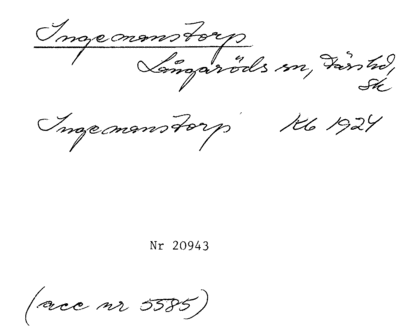 Ingemanstorp
Långaröds sn, Färs hd,
Sk
Ingemanstorp Kb 1924
Nr 20943
(acc nr 5585)